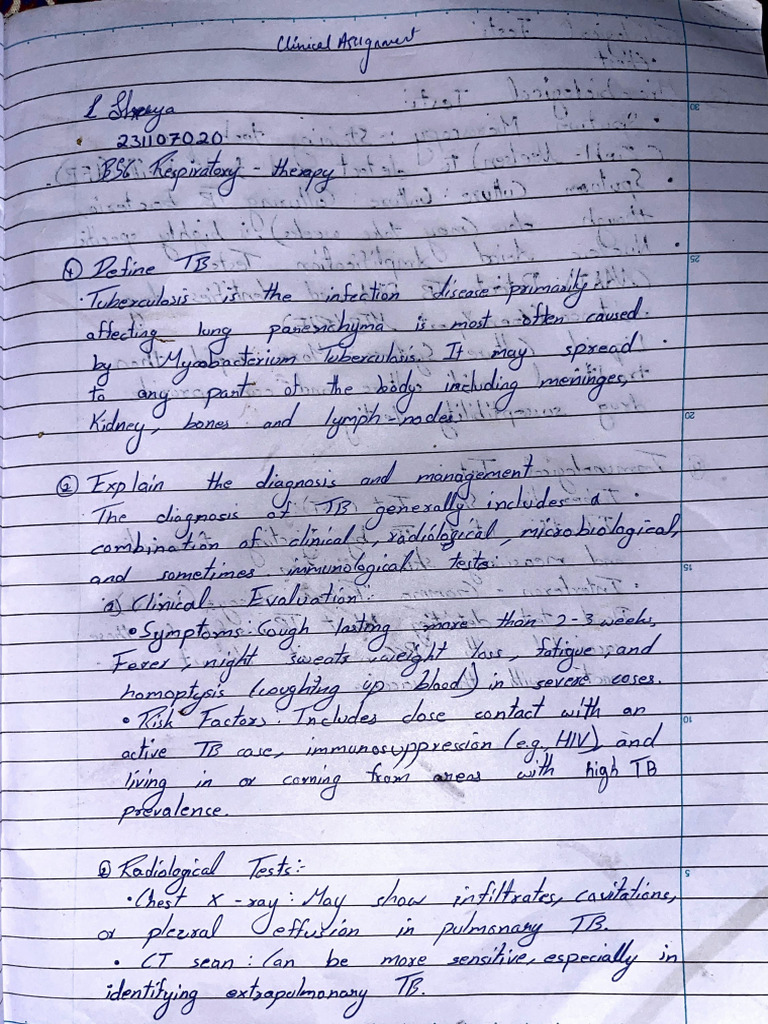 Clinical Assignment
L Shreya
231107020
BSc Respiratory - therapy
① Define TB
· Tuberculosis is the infection disease primarily
affecting lung parenchyma is most often caused
by Mycobacterium Tuberculosis. It may spread
to any part of the body including meninges,
Kidney, bones and lymph-nodes.
② Explain the diagnosis and management
· The diagnosis of TB generally includes a
combination of clinical, radiological, microbiological,
and sometimes immunological tests:
a) Clinical Evaluation:
• Symptoms: Cough lasting more than 2-3 weeks,
Fever, night sweats, weight loss, fatigue, and
homoptysis (coughing up blood) in severe cases.
• Risk Factors: Includes close contact with an
active TB case, immunosuppression (e.g., HIV), and
living in or coming from areas with high TB
prevalence.
Radiological Tests:-
• Chest X-ray: May show infiltrates, cavitations,
or pleural effusion in pulmonary TB.
• CT scan: Can be more sensitive, especially in
identifying extrapulmonary TB.
30
25
20
15
10
5